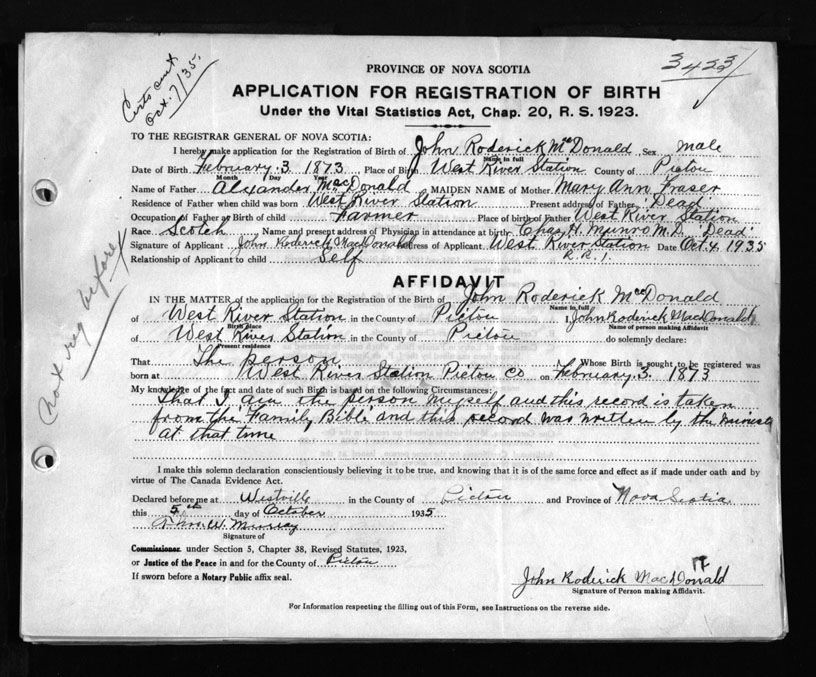 Certs sent
Oct. 7/35.
3423
PROVINCE OF NOVA SCOTIA
APPLICATION FOR REGISTRATION OF BIRTH
Under the Vital Statistics Act, Chap. 20, R. S. 1923.
TO THE REGISTRAR GENERAL OF NOVA SCOTIA:
I hereby make application for the Registration of Birth of John Roderick McDonald, Sex male
Name in full
Date of Birth February 3 1873 Place of Birth West River Station County of Pictou
Month Day Year
Name of Father Alexander MacDonald MAIDEN NAME of Mother Mary Ann Fraser
Residence of Father when child was born West River Station Present address of Father "Dead"
Occupation of Father at Birth of child Farmer Place of birth of Father West River Station
Race Scotch Name and present address of Physician in attendance at birth Chas. H. Munro M.D. "Dead"
Signature of Applicant John Roderick MacDonald Address of Applicant West River Station Date Oct. 4, 1935
Relationship of Applicant to child Self R.R.1.
not reg before
AFFIDAVIT
IN THE MATTER of the application for the Registration of the Birth of John Roderick McDonald
Name in full
of West River Station in the County of Pictou I, John Roderick MacDonald
Birth place Name of person making Affidavit
of West River Station in the County of Pictou do solemnly declare:
Present residence
That The person Whose Birth is sought to be registered was
born at West River Station Pictou Co on February 3. 1873
My knowledge of the fact and date of such Birth is based on the following Circumstances:
That I am the person myself and this record is taken
from the Family Bible and this record was written by the minister
at that time
I make this solemn declaration conscientiously believing it to be true, and knowing that it is of the same force and effect as if made under oath and by
virtue of The Canada Evidence Act.
Declared before me at Westville in the County of Pictou and Province of Nova Scotia
this 5th day of October 1935
W. Murray
Signature of
Commissioner under Section 5, Chapter 38, Revised Statutes, 1923,
or Justice of the Peace in and for the County of Pictou
If sworn before a Notary Public affix seal.
John Roderick MacDonald
Signature of Person making Affidavit.
For Information respecting the filling out of this Form, see Instructions on the reverse side.